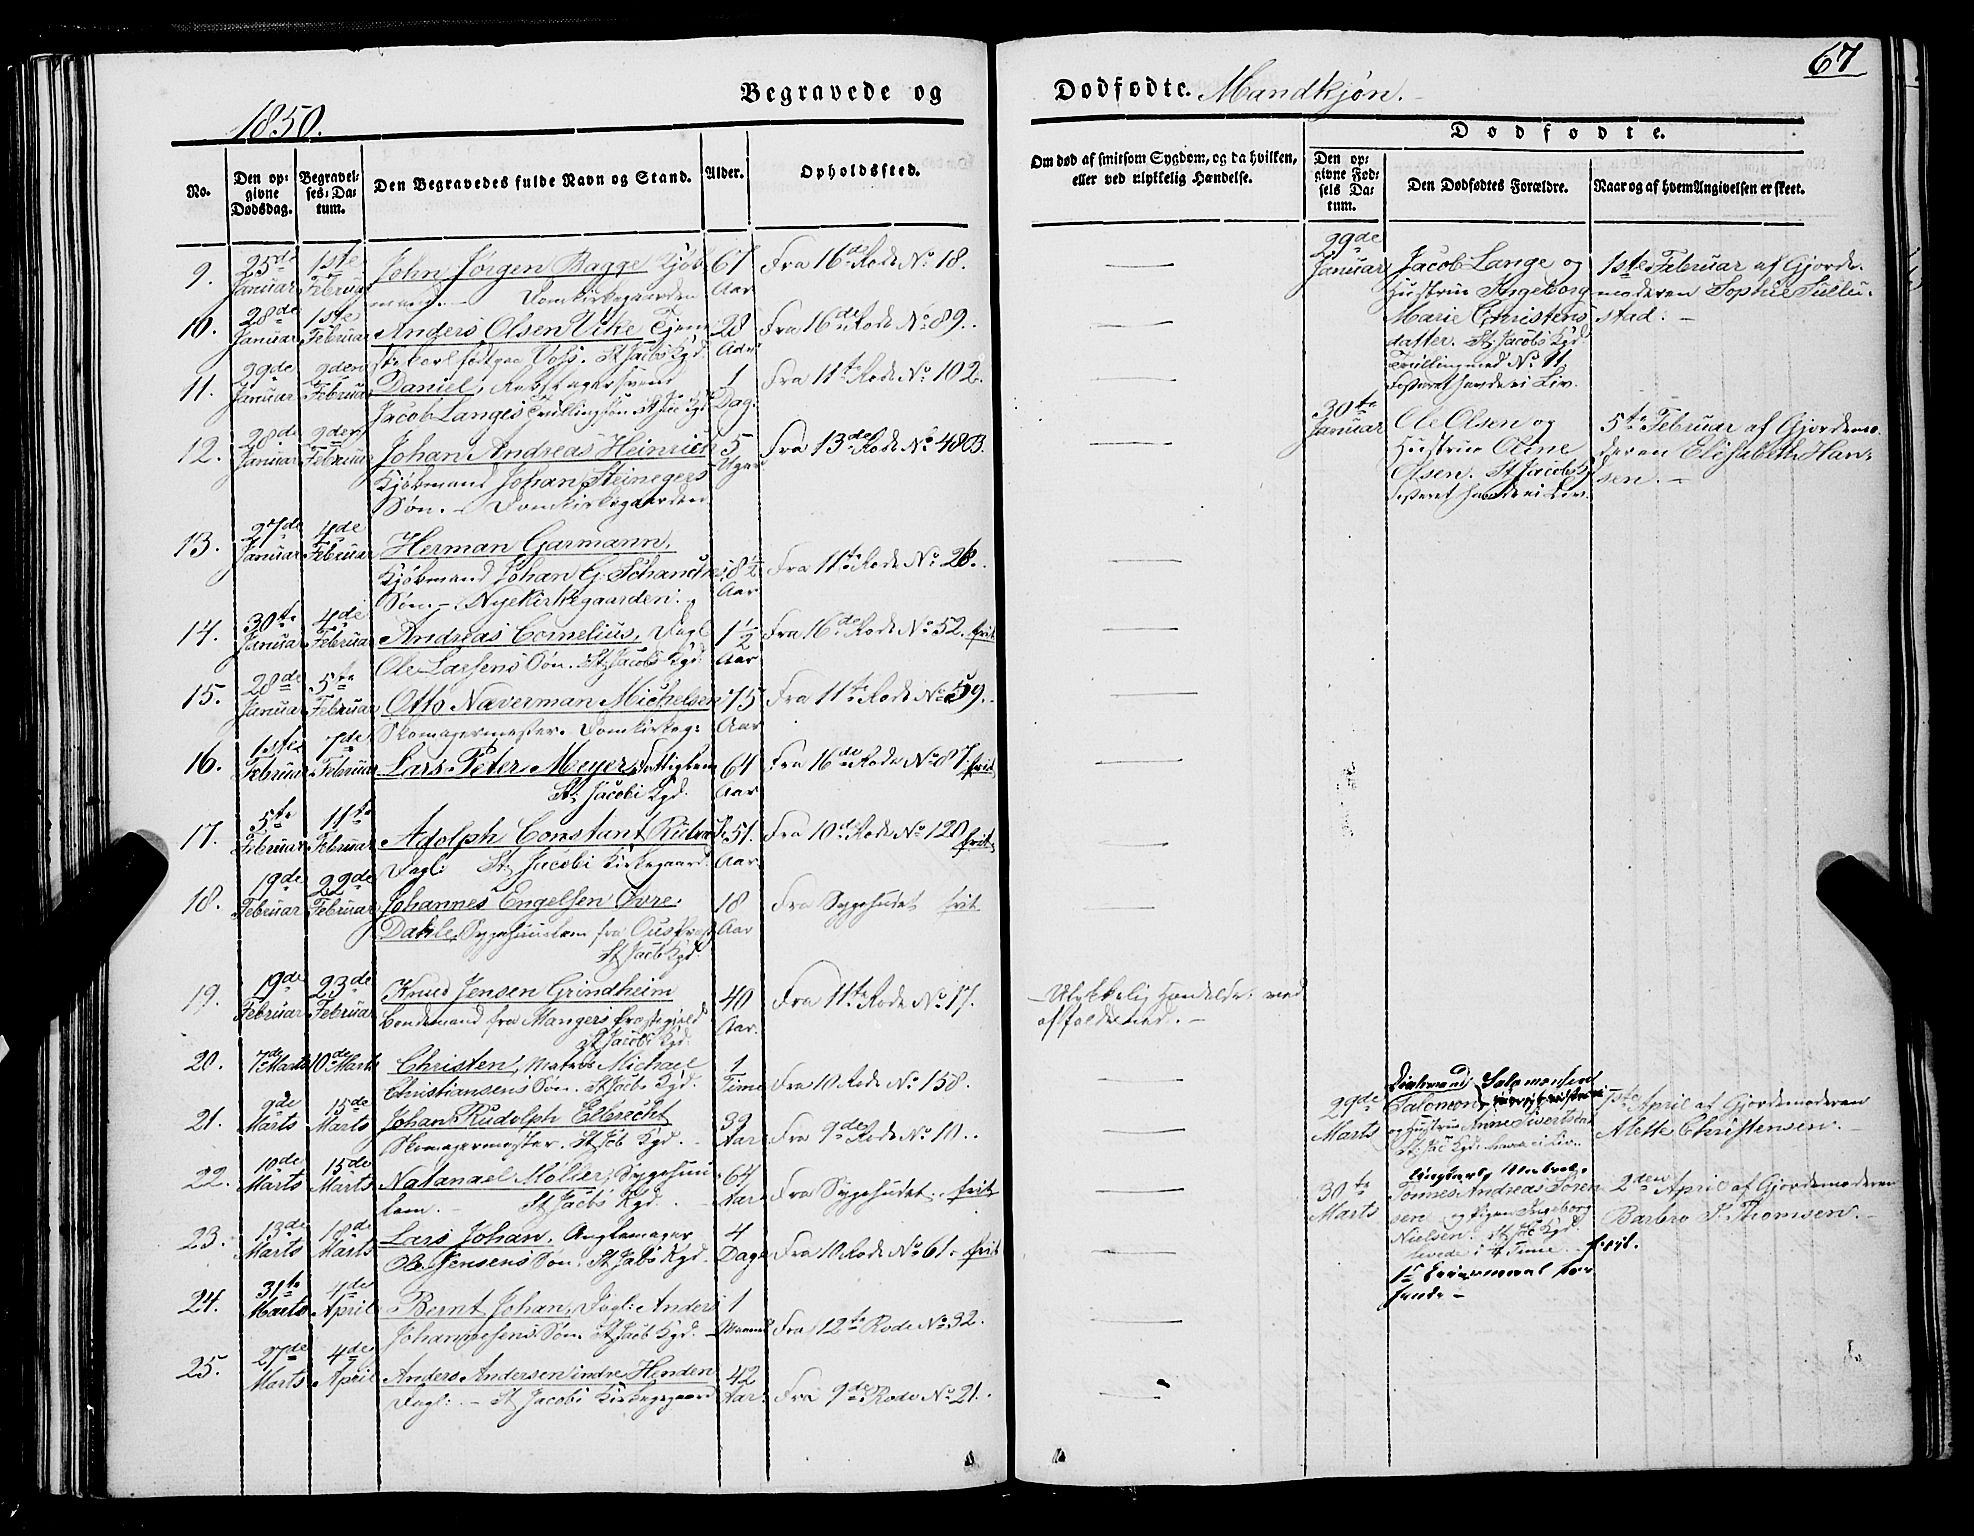 67
1850.
Begravede og
Dødfødte. Mandkjøn.
No.
Den opgivne Dødsdag.
Begravelses-Datum.
Den Begravedes fulde Navn og Stand.
Alder.
Opholdssted.
Om død af smitsom Sygdom, og da hvilken,
eller ved ulykkelig Hændelse.
Dødfødte.
Den opgivne Fødsels Datum.
Den Dødfødtes Forældre.
Naar og af hvem Angivelsen er skeet.
9. 25de Januar 1ste Februar John Jørgen Bagge Kjøb 67 Aar Fra 16de Rode No 18.
mand. - Domkirkegaarden
10. 28de Januar 1ste Februar Anders Olsen Vike Tjene 28 Aar Fra 16de Rode No 89.
stekarl født paa Voss. St Jacobs Kgd.
11. 29de Januar 2den Februar Daniel, Rebslagersvend 1 Dag Fra 11te Rode No 102.
Jacob Langes Trillingsøn St Jac Kgd
12. 28de Januar 2den Februar Johan Andreas Heinrich 5 Uger Fra 13de Rode No 480B.
Kjøbmand Johan Steinegers
Søn. - Domkirkegaarden
13. 27de Januar 4de Februar Herman Garmann,
Kjøbmand Johan G. Schanche 8½ Aar Fra 11te Rode No 26.
Søn. - Nyekirkegaarden.
14. 30te Januar 4de Februar Andreas Cornelius, Dagl 1½ Aar Fra 16de Rode No 52. frit
Ole Larsens Søn. St Jacobs Kgd.
15. 28de Januar 5te Februar Otto Næverman Michelsen 75 Aar Fra 11te Rode No 59.
Skomagermester. Domkirkeg:
16. 1ste Februar 7de Februar Lars Peter Meyer, Fattiglem 64 Aar Fra 16de Rode No 87. frit
St. Jacobi Kgd.
17. 5te Februar 11te Februar Adolph Constant 51. Aar Fra 10de Rode No 120 frit
Dagl: St. Jacobi Kirkegaard.
18. 19de Februar 22de Februar Johannes Engelsen Øvre 18 Aar Fra Sygehuset frit
Dahle, Sygehuuslem fra
St Jacobi Kgd.
19. 19de Februar 23de Februar Knud Jensen Grindheim 40 Aar. Fra 11te Rode No 17. - Ulykkelig Hændelse: ved
Bondemand fra Mangers Præstegjeld
St Jacobi Kgd.
20. 7de Marts 10de Marts Christen, Matros Michael 1 Time Fra 10 Rode No 158.
Christiansens Søn. St Jacobs Kgd.
21. 9de Marts 15de Marts Johan Rudolph Elbrecht 39 Aar Fra 9de Rode No 10.
Skomagermester. St Jcb Kgd.
22. 10de Marts 15de Marts Natanael Møller, Sygehuus 64 Aar Fra Sygehuset. frit
lem. - St Jacobs Kgd.
23. 13de Marts 18de Marts Lars Johan, 4 Dage Fra 10 Rode No 61. frit
Ole Jensens Søn. St Jabs Kgd.
24. 31te Marts 4de April Bernt Johan, Dagl: Anders 1 Maaned Fra 12te Rode No 32.
Johannesens Søn. St Jacb Kgd.
25. 27de Marts 4de April Anders Andersen indre Henden 42 Aar. Fra 9de Rode No 21.
Dagl: - St Jacobi Kirkegaard
29de Januar
Jacob Lange og
Hustrue Ingeborg
Marie Christens
datter. St. Jacobs Kgd
Trilling med No 11
Fosteret havde ei Liv.
1ste Februar af Gjorde-
moderen Sophie Tulle-
stad. -
30te Januar
Ole Olsen og
Hustrue Oline
Olsen. St Jacobs Kgd
Fosteret havde ei Liv.
5te Februar af Gjordemo-
deren Elisabeth Han-
sen. -
29de Marts
Salomon
og Hustrue Anne Sivertsen
St. Jac Kgd. havde ei Liv.
1ste April af Gjordemoderen
Alette Christensen.
30te Marts
Tønnes Andreas Søren
sen og Pigen Ingeborg
Nielsen. St Jac Kgd.
levede i ¼ Time.
2den April af Gjordemoderen
Barbro P. Thomsen.